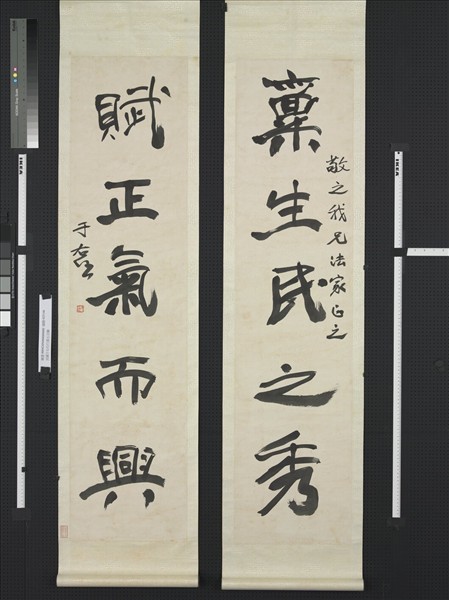 稟生民之秀
敬之我兄法家正之
賦正氣而興
于右任